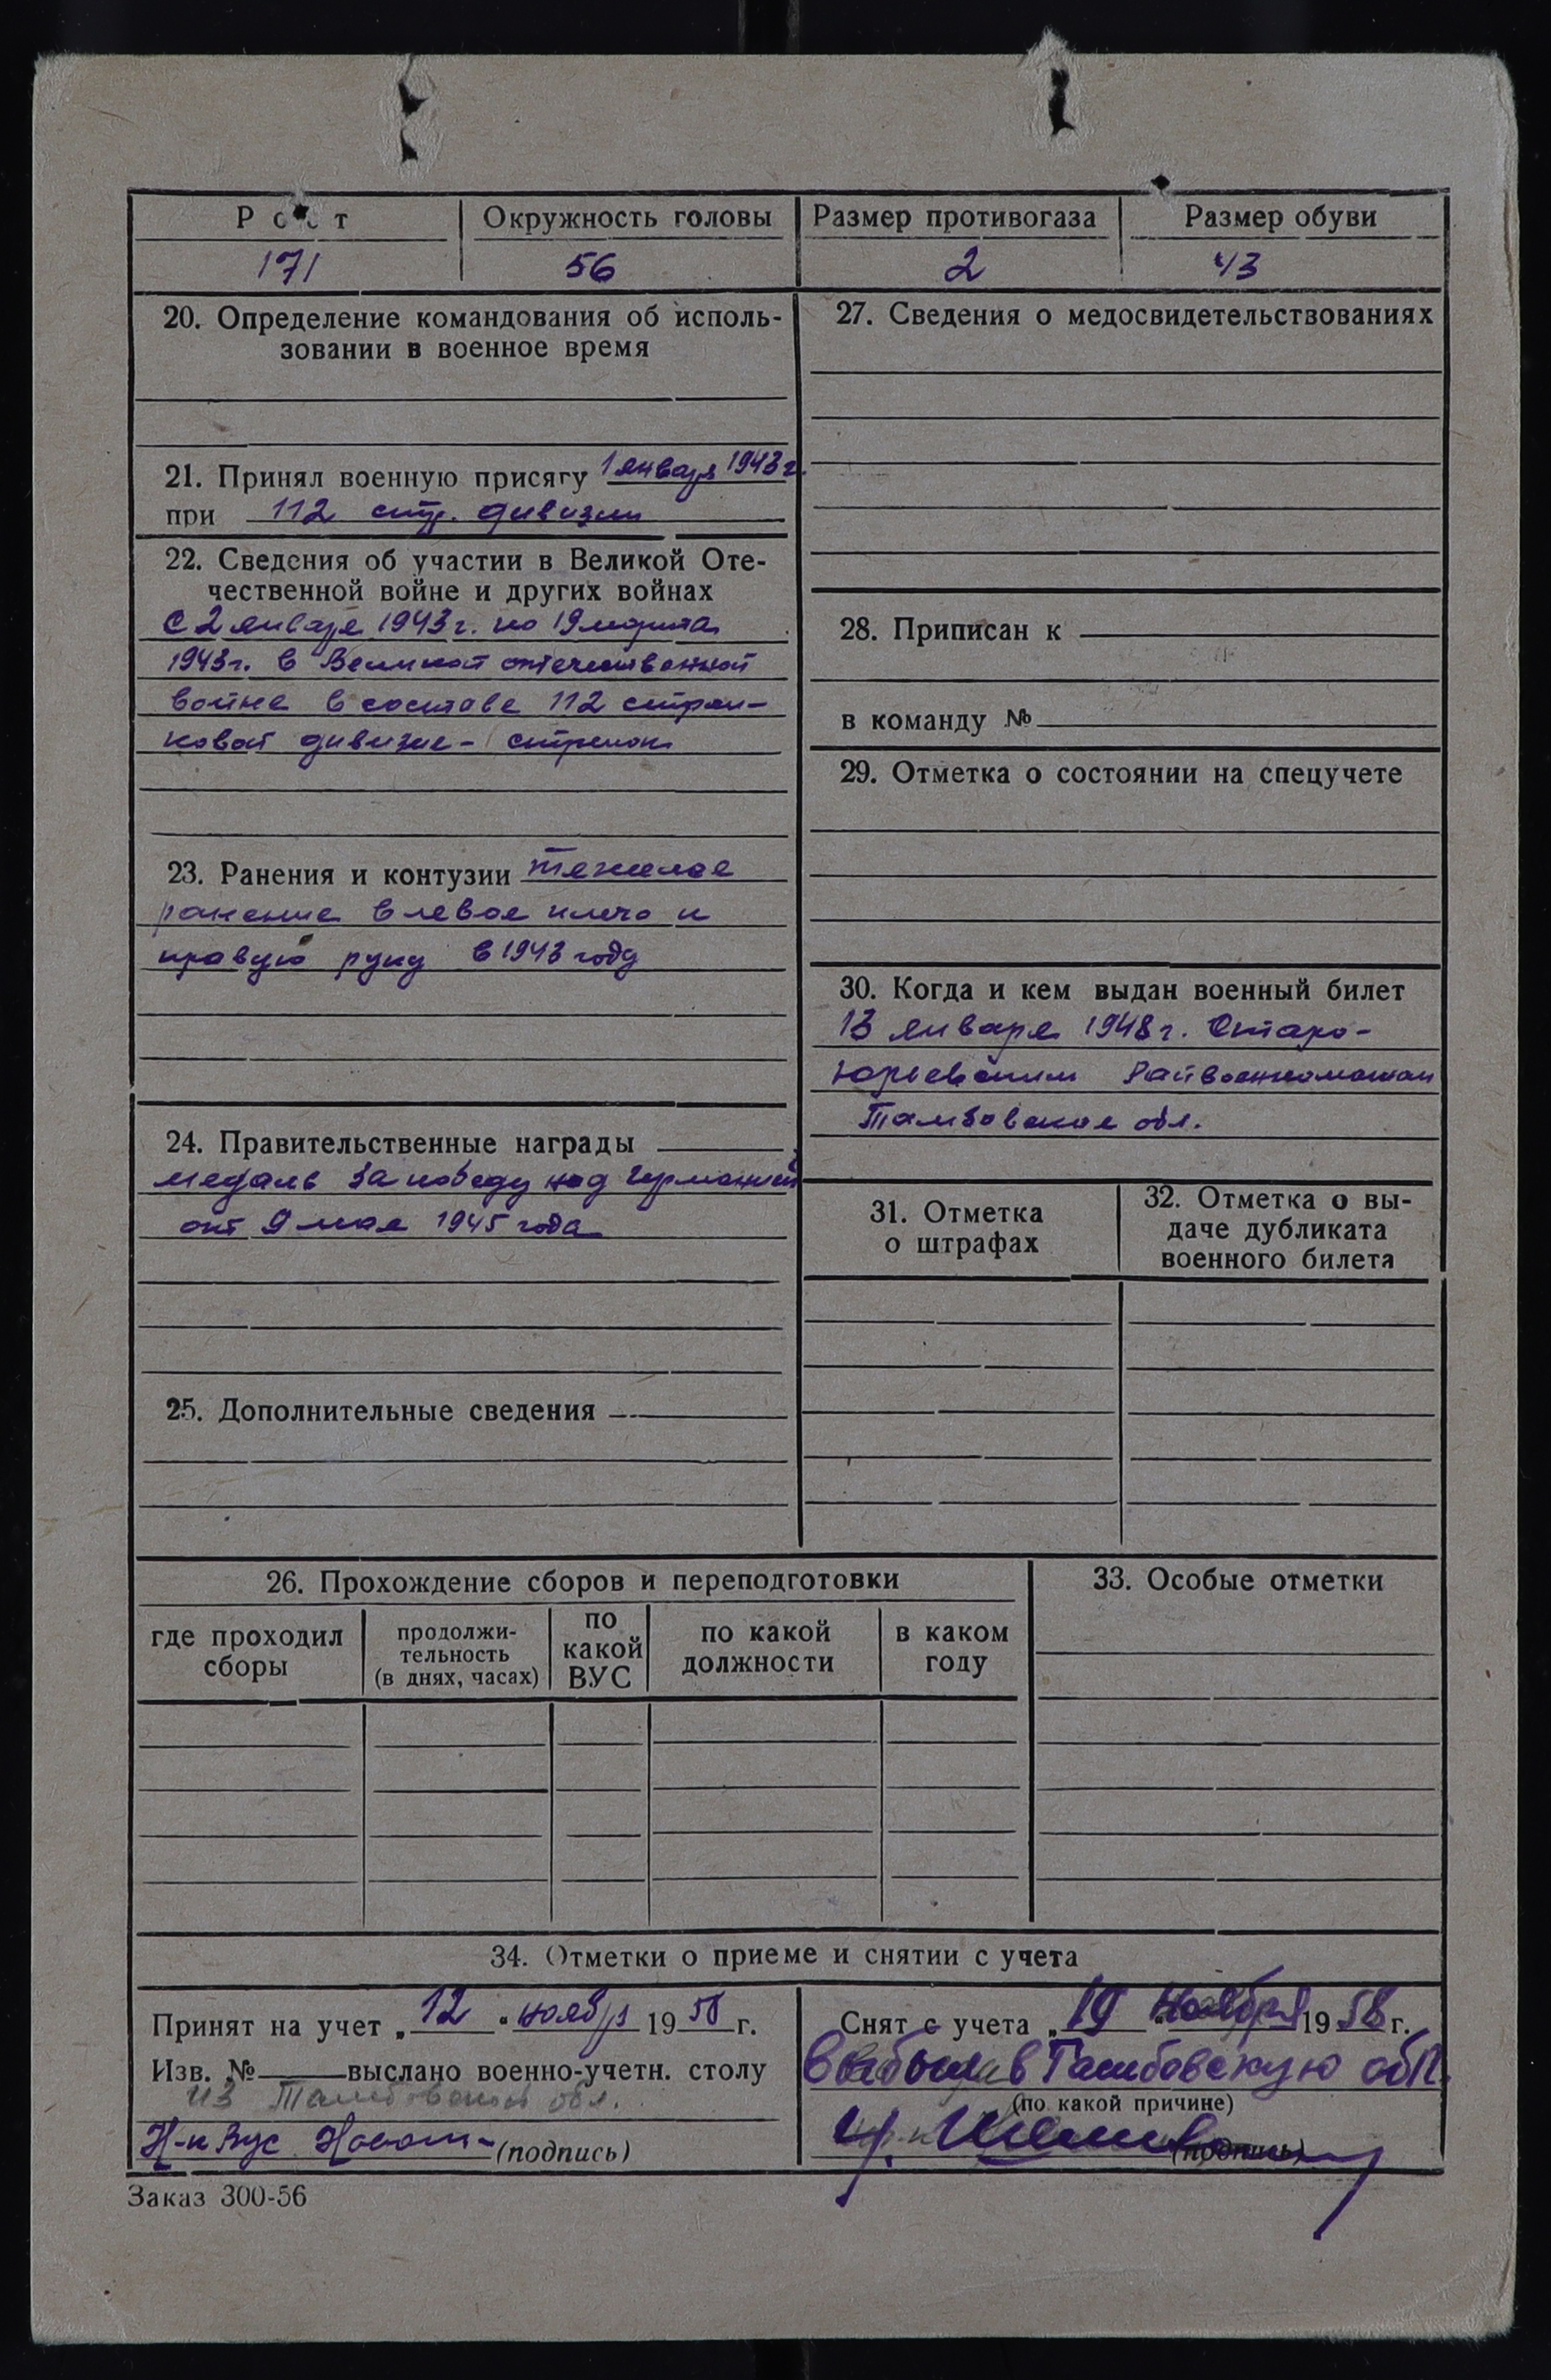 Рост
Окружность головы
Размер противогаза
Размер обуви
171
56
2
43
20. Определение командования об исполь-
зовании в военное время
21. Принял военную присягу 1 января 1943 г.
при 112 стр. дивизии
22. Сведения об участии в Великой Оте-
чественной войне и других войнах
С 2 января 1943 г. по 19 марта
1943 г. в Великой отечественной
войне в составе 112 стрел-
ковой дивизие - стрелок
23. Ранения и контузии тяжелое
ранение в левое плечо и
правую руку в 1943 году
24. Правительственные награды
медаль За победу над Германией
от 9 мая 1945 года
25. Дополнительные сведения
27. Сведения о медосвидетельствованиях
28. Приписан к
в команду №
29. Отметка о состоянии на спецучете
30. Когда и кем выдан военный билет
13 января 1948 г. Старо-
юрьевским Райвоенкоматом
Тамбовское обл.
31. Отметка
о штрафах
32. Отметка о вы-
даче дубликата
военного билета
26. Прохождение сборов и переподготовки
где проходил
сборы
продолжи-
тельность
(в днях, часах)
по
какой
ВУС
по какой
должности
в каком
году
33. Особые отметки
34. Отметки о приеме и снятии с учета
Принят на учет „12 " ноября 1958 г.
Изв. № выслано военно-учетн. столу
из Тамбовской обл.
Н-к Вус (подпись)
Снят с учета „19 " ноября 1958 г.
Выбыл в Тамбовскую обл.
(по какой причине)
(подпись)
Заказ 300-56